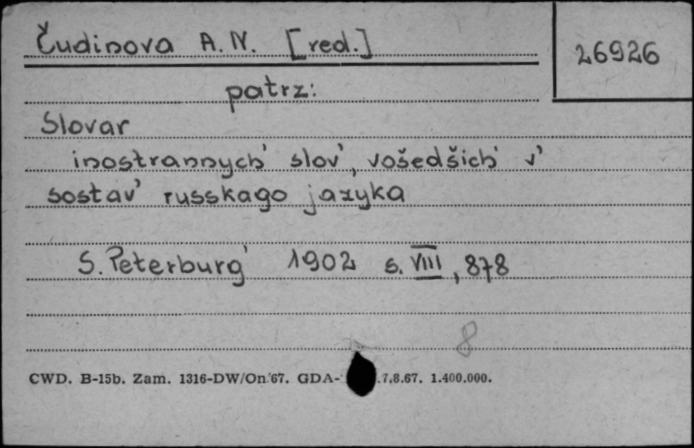 Čudinova A. N. [red.]
26926
patrz:
Slovar
inostrannych' slov', vošedšich' v'
sostav' russkago jazyka
S. Peterburg' 1902 s. VIII, 878
8
CWD. B-15b. Zam. 1316-DW/On/67. GDA- .7.8.67. 1.400.000.